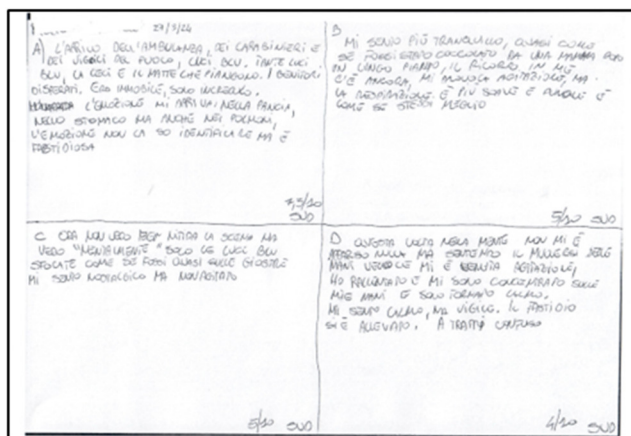 27/3/24
A) L'ARRIVO DELL'AMBULANZA, DEI CARABINIERI E
DEI VIGILI DEL FUOCO, LUCI BLU. TANTE LUCI
BLU, LA CERI E IL MATTE CHE PIANGONO. I GENITORI
DISPERATI. ERO IMMOBILE, SOLO INCREDULO.
L'EMOZIONE MI ARRIVA NELLA PANCIA,
NELLO STOMACO MA ANCHE NEI POLMONI,
L'EMOZIONE NON LA SO IDENTIFICARE MA È
FASTIDIOSA
SUD
B
MI SENTO PIÙ TRANQUILLO, QUASI COME
SE FOSSI STATO COCCOLATO DA UNA MAMMA DOPO
UN LUNGO PIANTO, IL RICORDO IN ME
C'È ANCORA, MI PROVOCA AGITAZIONE MA
LA RESPIRAZIONE È PIÙ SOAVE E ANCHE È
COME SE STESSI MEGLIO
5/10 SUD
C ORA NON VEDO NITIDA LA SCENA MA
VEDO "MENTALMENTE" SOLO LE LUCI BLU
SFOCATE COME SE FOSSI QUASI SULLE GIOSTRE
MI SENTO NOSTALGICO MA NON AGITATO
5/10 SUD
D QUESTA VOLTA NELLA MENTE NON MI È
APPARSO NULLA MA SENTENDO IL DELLE
MANI VELOCE MI È VENUTA AGITAZIONE,
HO RALLENTATO E MI SONO CONCENTRATO SULLE
MIE MANI E SONO TORNATO CALMO.
MI SENTO CALMO, MA VIGILE. IL FASTIDIO
SI È ALLEVIATO. A TRATTI CONFUSO
4/10 SUD